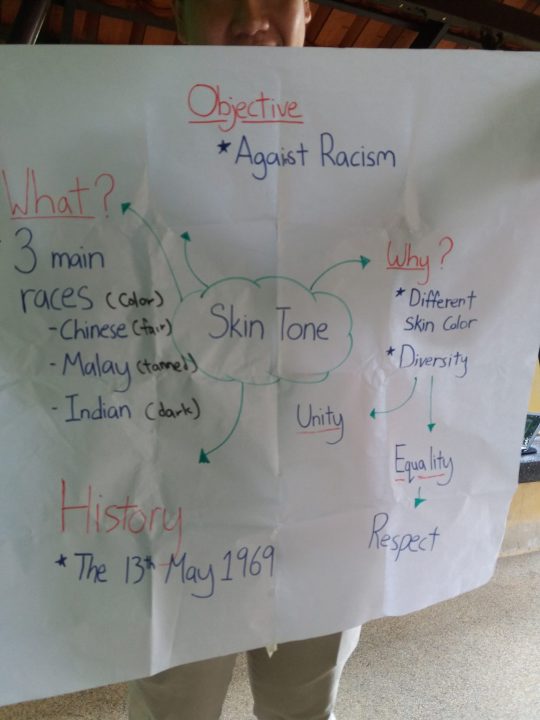 Objective
* Agaist Racism
What?
3 main
races (color)
- Chinese (fair)
- Malay (tanned)
- Indian (dark)
Skin Tone
Why?
* Different
Skin Color
* Diversity
Unity
Equality
Respect
History
* The 13th May 1969